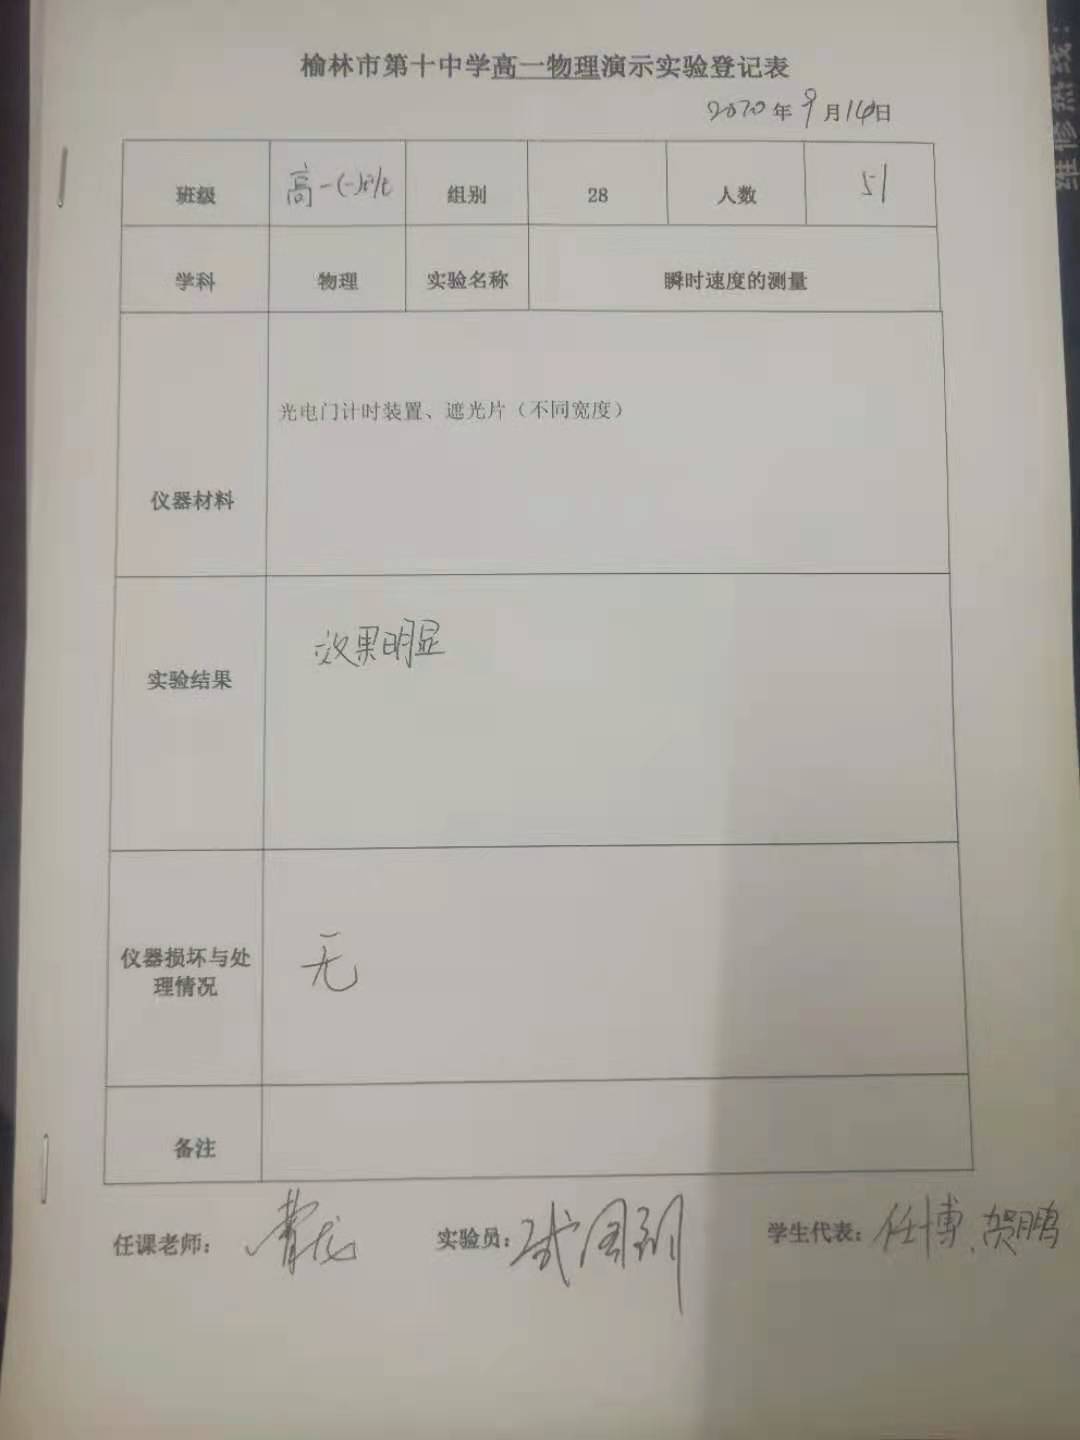 榆林市第十中学高一物理演示实验登记表
2020年9月14日
班级 高一(一)班 组别 28 人数 51
学科 物理 实验名称 瞬时速度的测量
仪器材料 光电门计时装置、遮光片（不同宽度）
实验结果 效果明显
仪器损坏与处
理情况 无
备注
任课老师： 实验员： 学生代表：任博、贺鹏
维修热线：